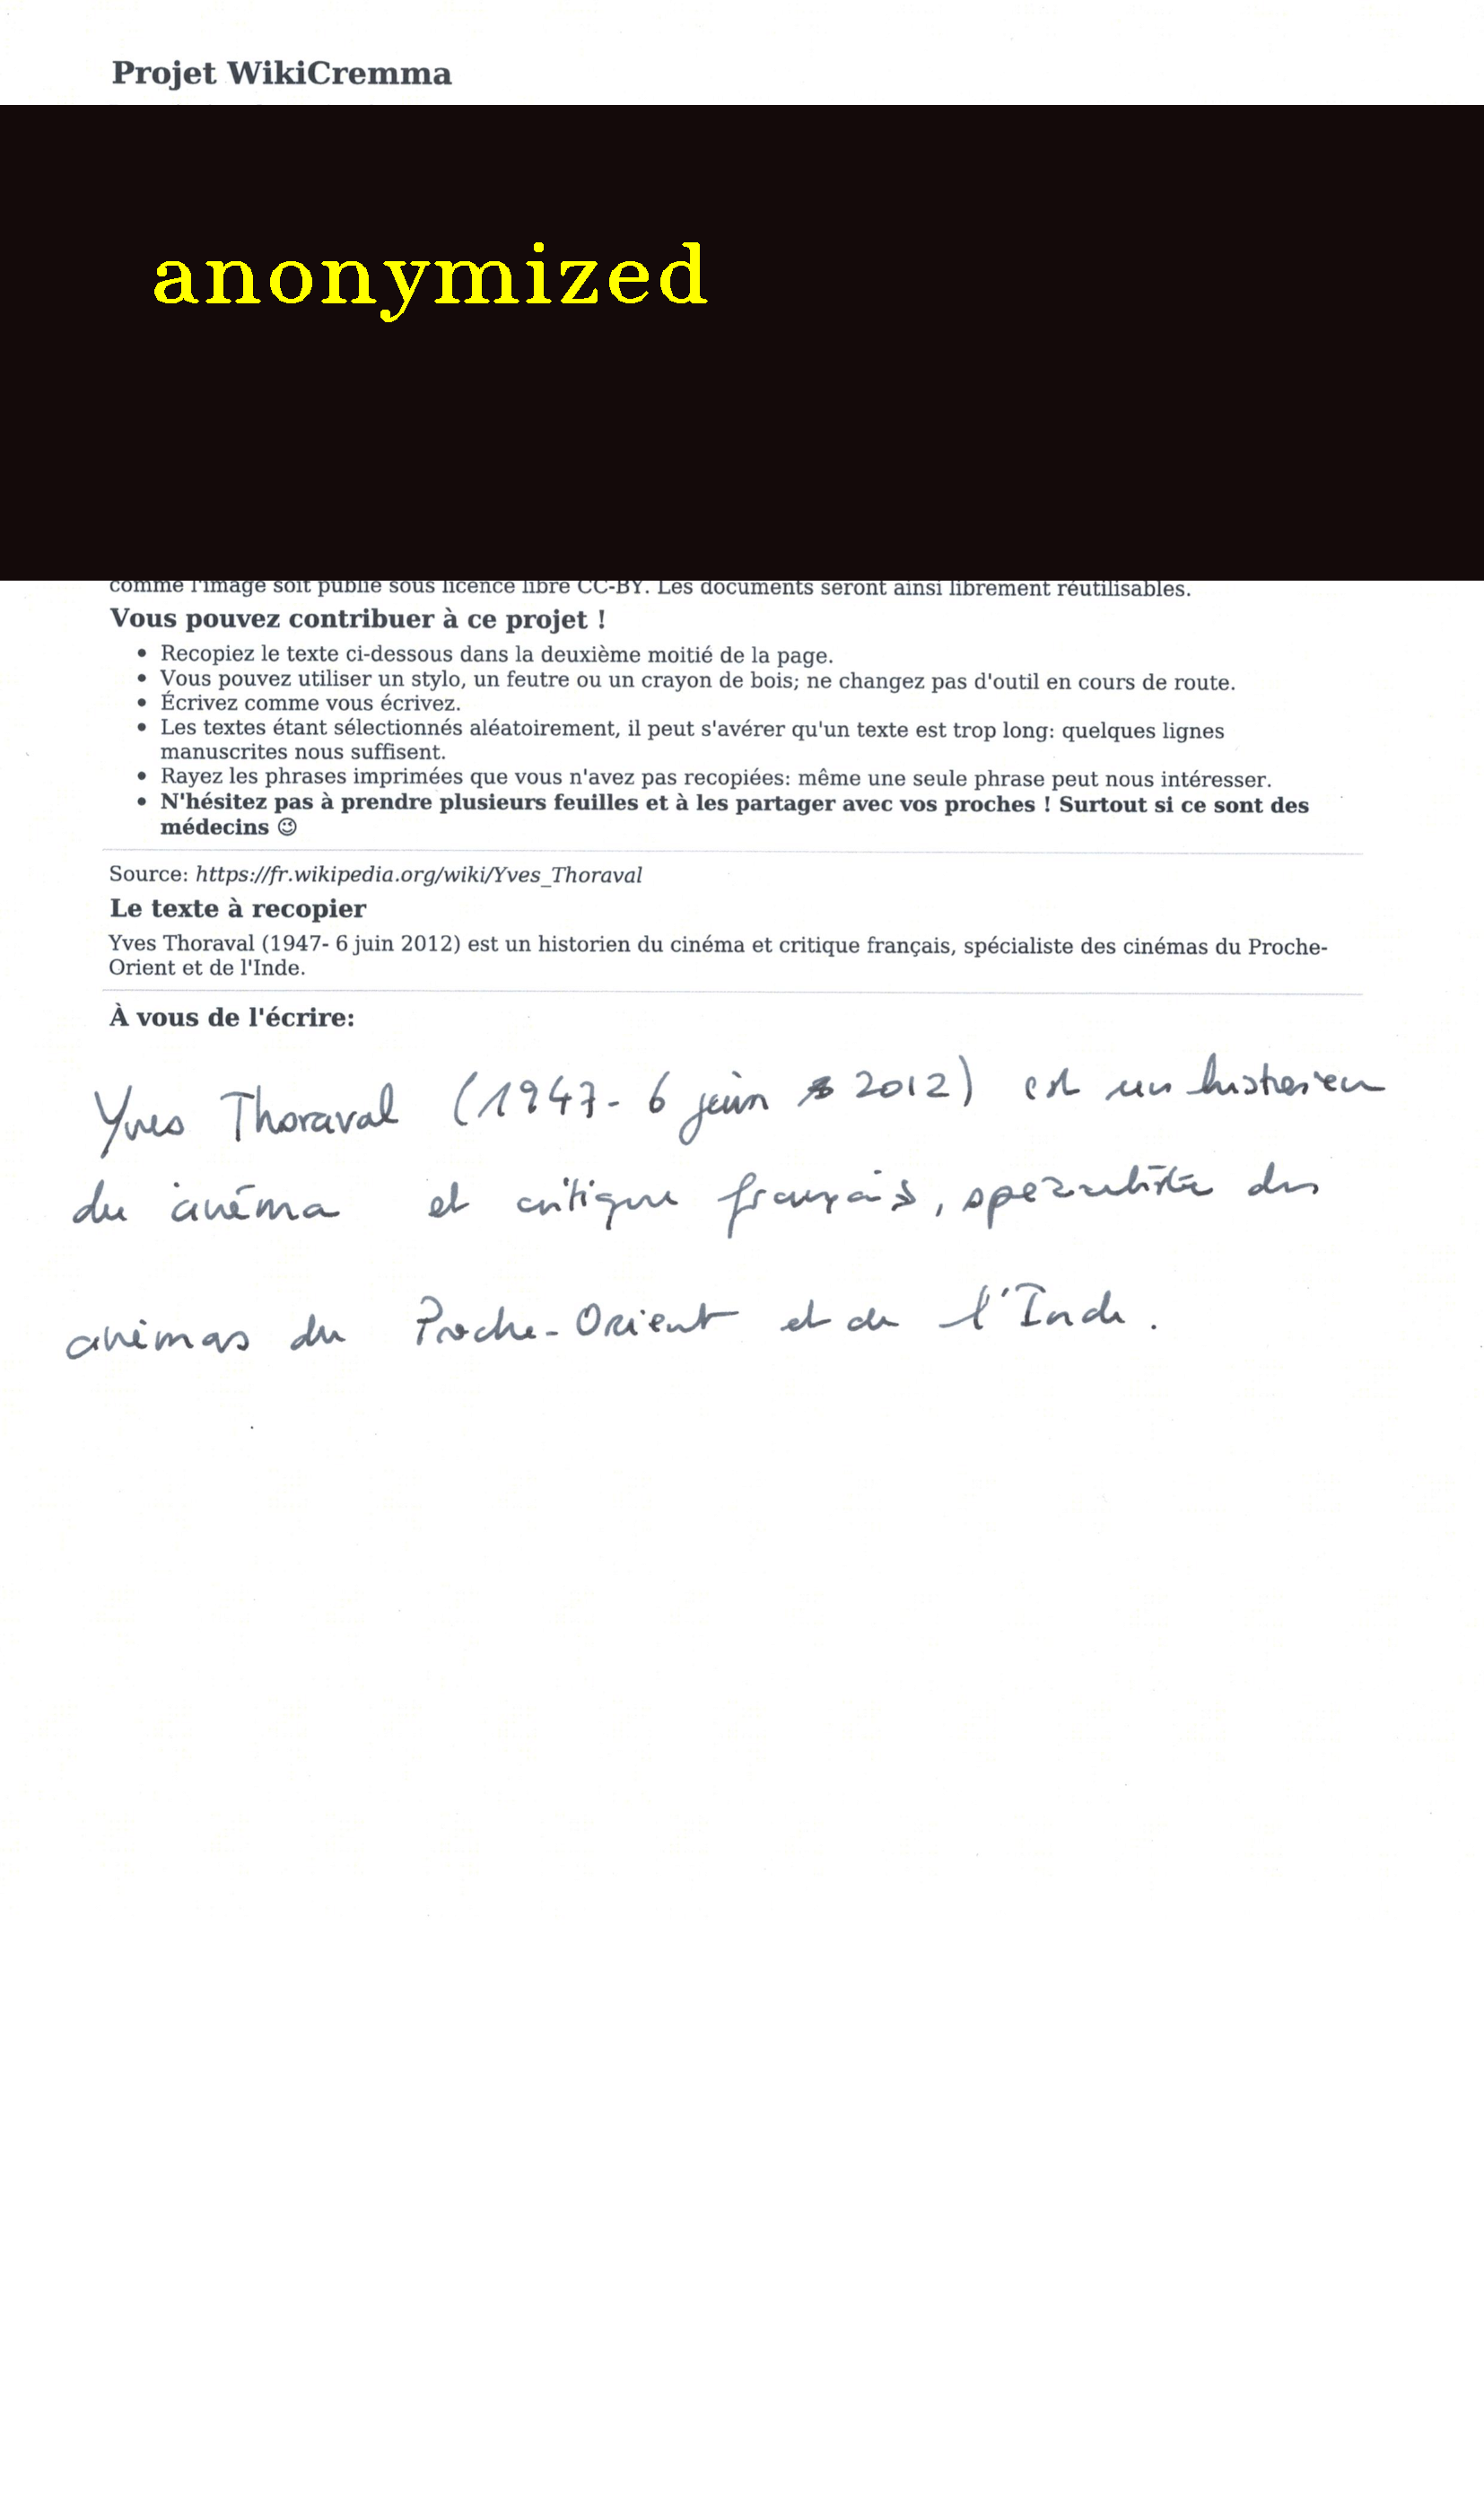 Projet WikiCremma
anonymized
comme l'image soit publié sous licence libre CC-BY. Les documents seront ainsi librement réutilisables.
Vous pouvez contribuer à ce projet !
• Recopiez le texte ci-dessous dans la deuxième moitié de la page.
• Vous pouvez utiliser un stylo, un feutre ou un crayon de bois; ne changez pas d'outil en cours de route.
• Écrivez comme vous écrivez.
• Les textes étant sélectionnés aléatoirement, il peut s'avérer qu'un texte est trop long: quelques lignes
manuscrites nous suffisent.
• Rayez les phrases imprimées que vous n'avez pas recopiées: même une seule phrase peut nous intéresser.
• N'hésitez pas à prendre plusieurs feuilles et à les partager avec vos proches ! Surtout si ce sont des
médecins 😉
Source: https://fr.wikipedia.org/wiki/Yves_Thoraval
Le texte à recopier
Yves Thoraval (1947- 6 juin 2012) est un historien du cinéma et critique français, spécialiste des cinémas du Proche-
Orient et de l'Inde.
À vous de l'écrire:
Yves Thoraval (1947- 6 juin 2012) est un historien
du cinéma et critique français, spezialiste des
cinémas du Proche-Orient et de l'Inde.